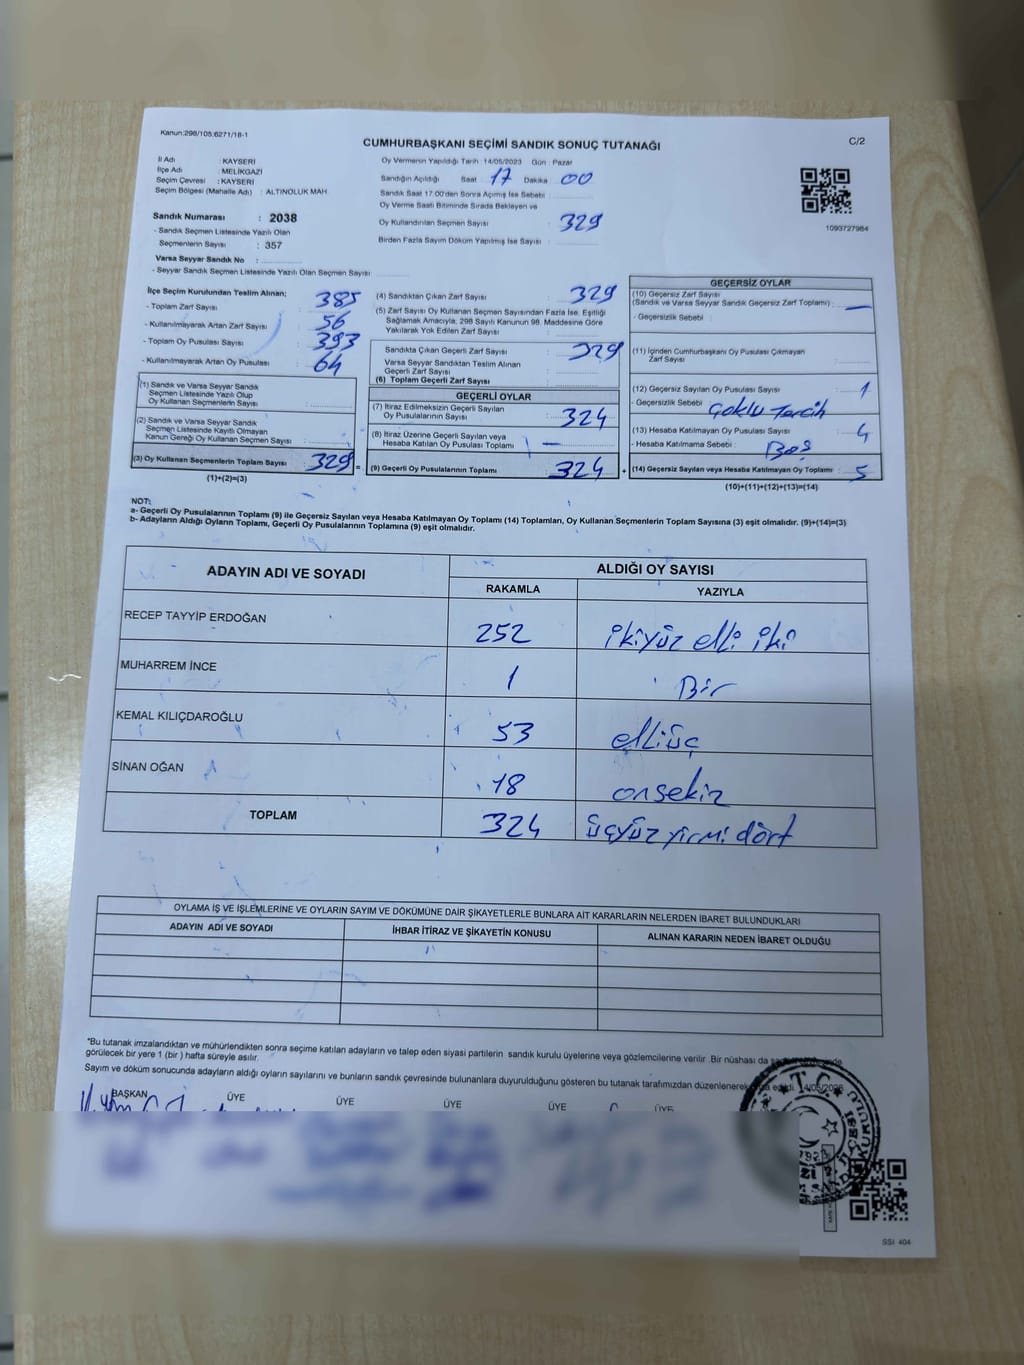 Kanun:298/105,6271/18-1
CUMHURBAŞKANI SEÇİMİ SANDIK SONUÇ TUTANAĞI
C/2
İl Adı : KAYSERİ
İlçe Adı : MELİKGAZİ
Seçim Çevresi : KAYSERİ
Seçim Bölgesi (Mahalle Adı) : ALTINOLUK MAH.
Oy Vermenin Yapıldığı Tarih :14/05/2023 Gün : Pazar
Sandığın Açıldığı Saat : 17 Dakika : 00
Sandık Saat 17.00'den Sonra Açılmış İse Sebebi :
Oy Verme Saati Bitiminde Sırada Bekleyen ve
Oy Kullandırılan Seçmen Sayısı : 329
Birden Fazla Sayım Döküm Yapılmış İse Sayısı :
1093727984
Sandık Numarası : 2038
- Sandık Seçmen Listesinde Yazılı Olan
Seçmenlerin Sayısı : 357
Varsa Seyyar Sandık No :
- Seyyar Sandık Seçmen Listesinde Yazılı Olan Seçmen Sayısı :
İlçe Seçim Kurulundan Teslim Alınan;
- Toplam Zarf Sayısı : 385
- Kullanılmayarak Artan Zarf Sayısı : 56
- Toplam Oy Pusulası Sayısı : 393
- Kullanılmayarak Artan Oy Pusulası : 64
(1) Sandık ve Varsa Seyyar Sandık
Seçmen Listesinde Yazılı Olup
Oy Kullanan Seçmenlerin Sayısı :
(2) Sandık ve Varsa Seyyar Sandık
Seçmen Listesinde Kayıtlı Olmayan
Kanun Gereği Oy Kullanan Seçmen Sayısı :
(3) Oy Kullanan Seçmenlerin Toplam Sayısı : 329 =
(1)+(2)=(3)
(4) Sandıktan Çıkan Zarf Sayısı : 329
(5) Zarf Sayısı Oy Kullanan Seçmen Sayısından Fazla İse, Eşitliği
Sağlamak Amacıyla, 298 Sayılı Kanunun 98. Maddesine Göre
Yakılarak Yok Edilen Zarf Sayısı :
Sandıkta Çıkan Geçerli Zarf Sayısı : 329
Varsa Seyyar Sandıktan Teslim Alınan
Geçerli Zarf Sayısı :
(6) Toplam Geçerli Zarf Sayısı :
GEÇERLİ OYLAR
(7) İtiraz Edilmeksizin Geçerli Sayılan
Oy Pusulalarının Sayısı : 324
(8) İtiraz Üzerine Geçerli Sayılan veya
Hesaba Katılan Oy Pusulası Toplamı : —
(9) Geçerli Oy Pusulalarının Toplamı : 324 +
GEÇERSİZ OYLAR
(10) Geçersiz Zarf Sayısı
(Sandık ve Varsa Seyyar Sandık Geçersiz Zarf Toplamı) : —
- Geçersizlik Sebebi :
(11) İçinden Cumhurbaşkanı Oy Pusulası Çıkmayan
Zarf Sayısı :
(12) Geçersiz Sayılan Oy Pusulası Sayısı : 1
- Geçersizlik Sebebi : Çoklu Tercih
(13) Hesaba Katılmayan Oy Pusulası Sayısı : 4
- Hesaba Katılmama Sebebi : Boş
(14) Geçersiz Sayılan veya Hesaba Katılmayan Oy Toplamı : 5
(10)+(11)+(12)+(13)=(14)
NOT:
a- Geçerli Oy Pusulalarının Toplamı (9) ile Geçersiz Sayılan veya Hesaba Katılmayan Oy Toplamı (14) Toplamları, Oy Kullanan Seçmenlerin Toplam Sayısına (3) eşit olmalıdır. (9)+(14)=(3)
b- Adayların Aldığı Oyların Toplamı, Geçerli Oy Pusulalarının Toplamına (9) eşit olmalıdır.
ADAYIN ADI VE SOYADI
ALDIĞI OY SAYISI
RAKAMLA
YAZIYLA
RECEP TAYYİP ERDOĞAN 252 ikiyüz elli iki
MUHARREM İNCE 1 Bir
KEMAL KILIÇDAROĞLU 53 elliüç
SİNAN OĞAN 18 onsekiz
TOPLAM 324 üçyüz yirmi dört
OYLAMA İŞ VE İŞLEMLERİNE VE OYLARIN SAYIM VE DÖKÜMÜNE DAİR ŞİKAYETLERLE BUNLARA AİT KARARLARIN NELERDEN İBARET BULUNDUKLARI
ADAYIN ADI VE SOYADI
İHBAR İTİRAZ VE ŞİKAYETİN KONUSU
ALINAN KARARIN NEDEN İBARET OLDUĞU
*Bu tutanak imzalandıktan ve mühürlendikten sonra seçime katılan adayların ve talep eden siyasi partilerin sandık kurulu üyelerine veya gözlemcilerine verilir .Bir nüshası da
görülecek bir yere 1 (bir ) hafta süreyle asılır.
Sayım ve döküm sonucunda adayların aldığı oyların sayılarını ve bunların sandık çevresinde bulunanlara duyurulduğunu gösteren bu tutanak tarafımızdan düzenlenerek
BAŞKAN ÜYE ÜYE ÜYE ÜYE ÜYE
T.C.
SSİ 404